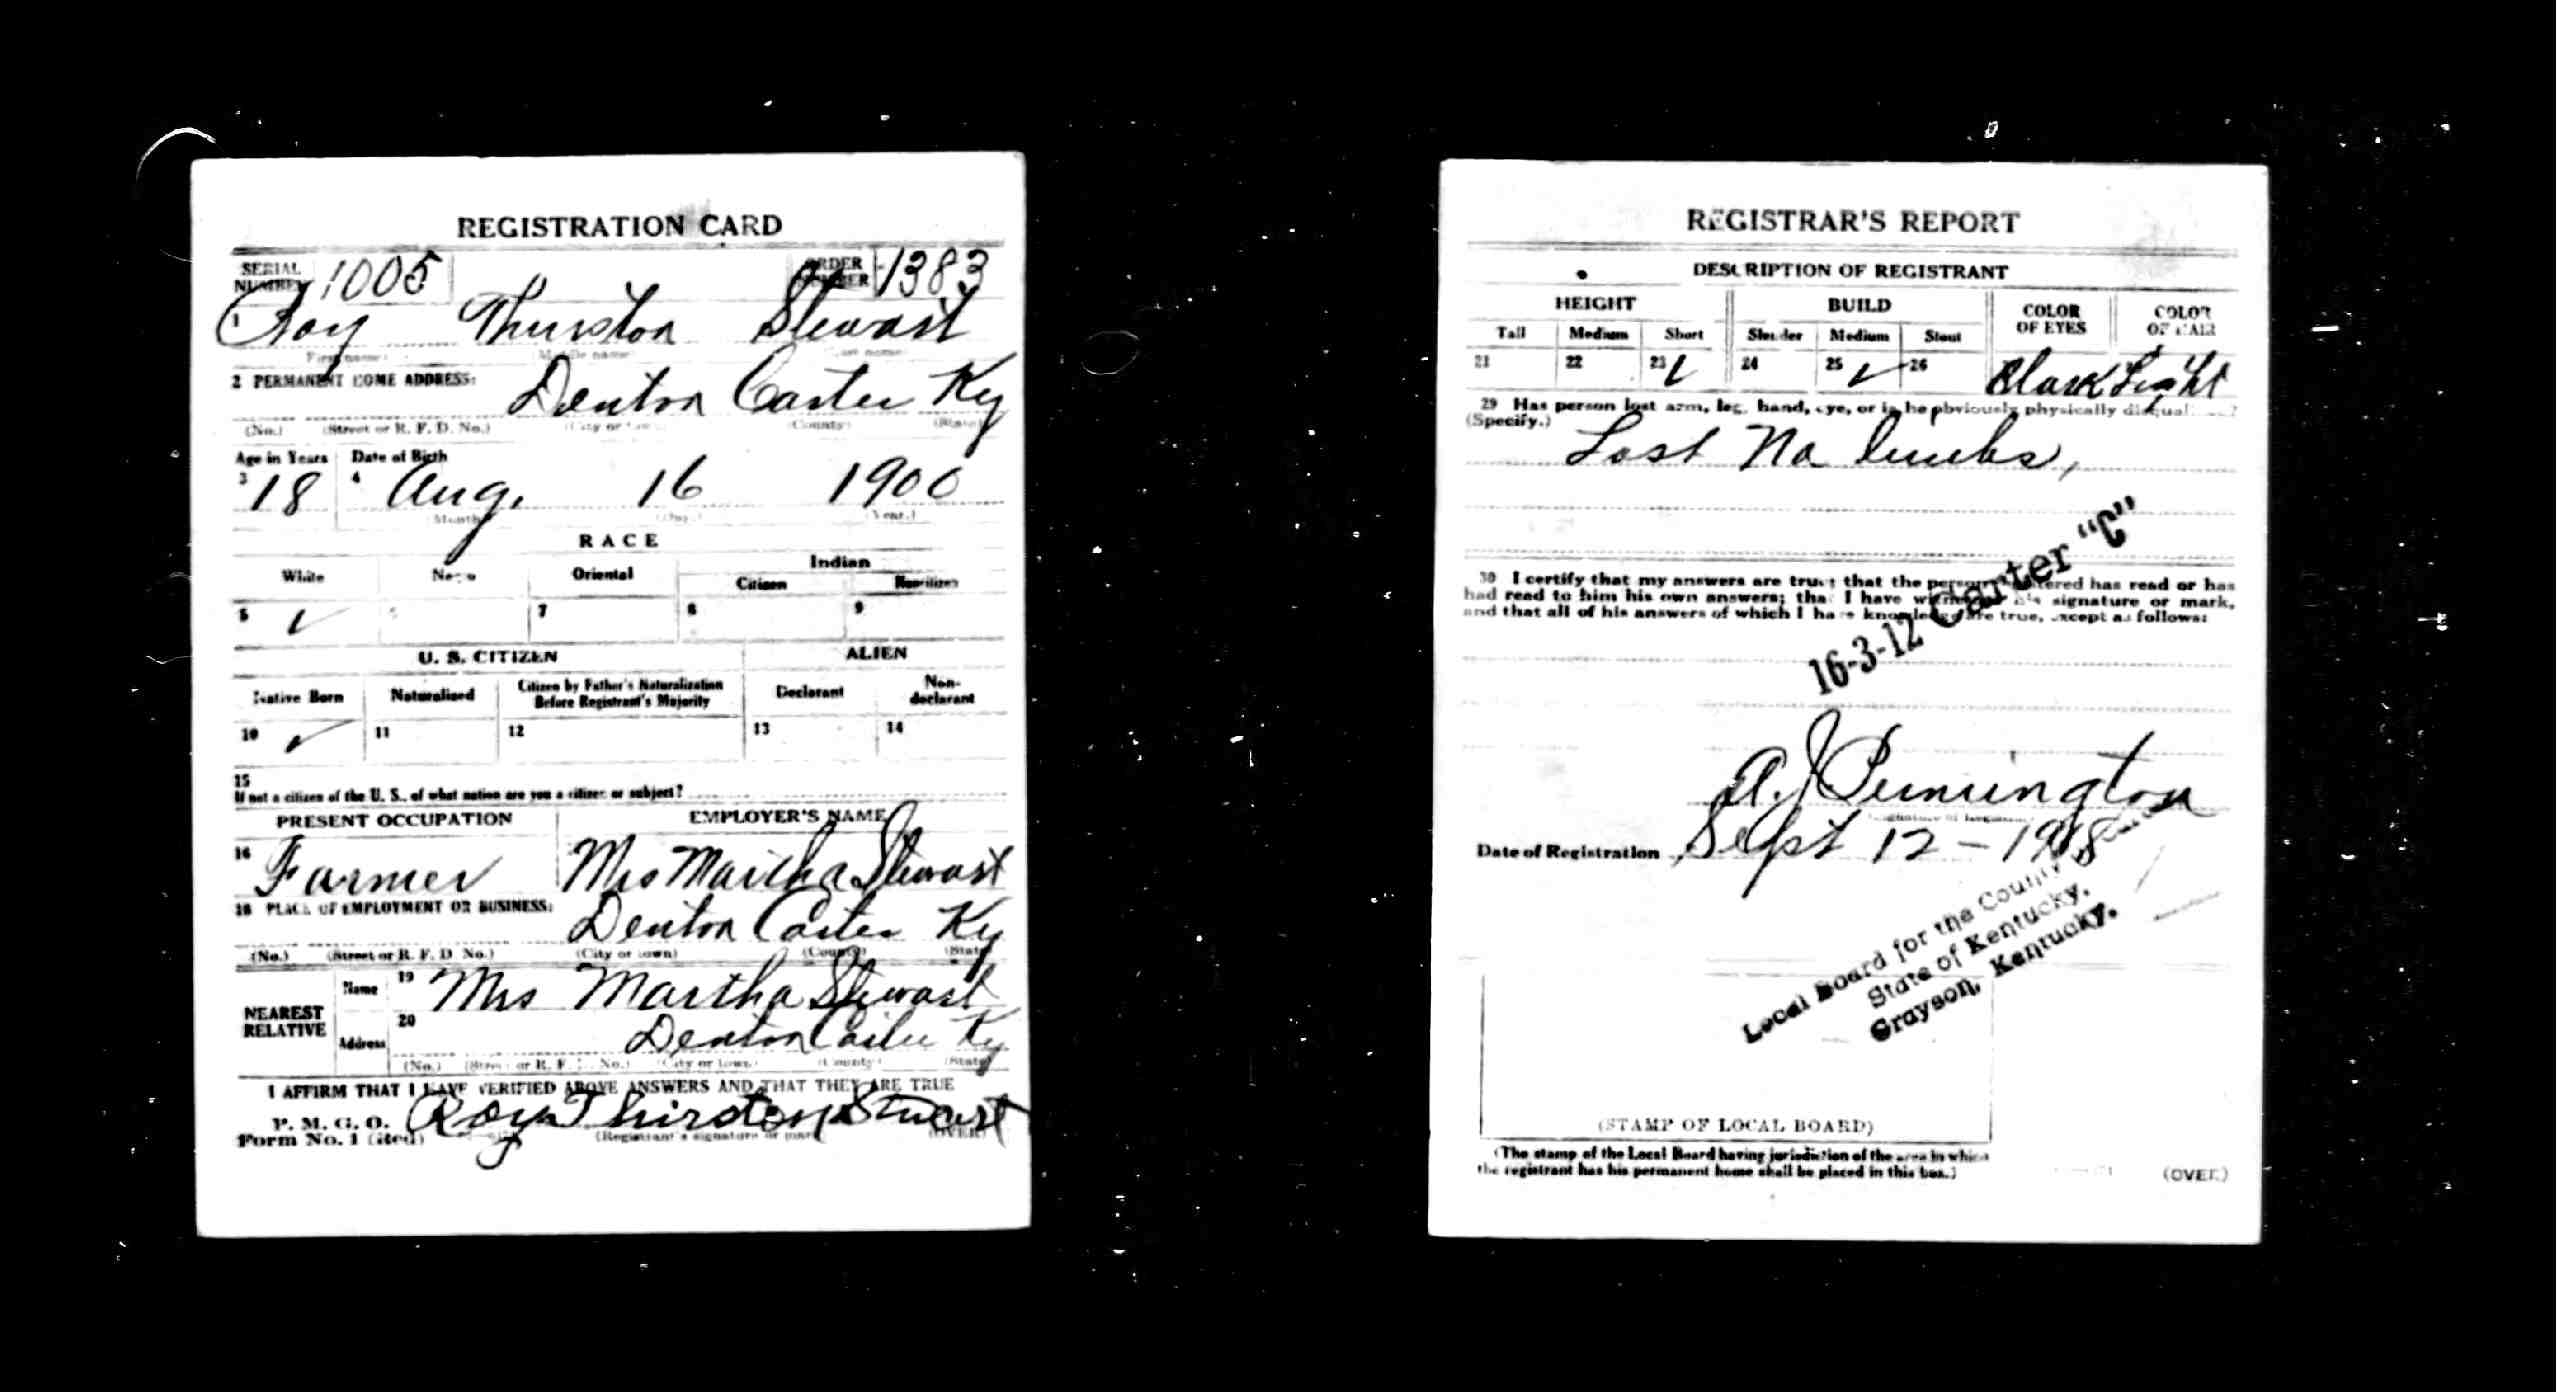 REGISTRATION CARD
SERIAL NUMBER 1005 ORDER NUMBER 1383
1 Roy Thurston Stewart
(First name) (Middle name) (Last name)
2 PERMANENT HOME ADDRESS:
Denton Carter Ky
(No.) (Street or R. F. D. No.) (City or town) (County) (State)
Age in Years Date of Birth
3 18 4 Aug. 16 1900
(Month.) (Day.) (Year.)
RACE
White Negro Oriental Indian
Citizen Noncitizen
5 ✓ 7 8 9
U. S. CITIZEN ALIEN
Native Born Naturalized Citizen by Father's Naturalization Before Registrant's Majority Declarant Non-declarant
10 ✓ 11 12 13 14
15
If not a citizen of the U. S., of what nation are you a citizen or subject?
PRESENT OCCUPATION EMPLOYER'S NAME
16 Farmer Mrs Martha Stewart
18 PLACE OF EMPLOYMENT OR BUSINESS:
Denton Carter Ky
(No.) (Street or R. F. D. No.) (City or town) (County) (State)
NEAREST RELATIVE
Name 19 Mrs Martha Stewart
Address 20 Denton Carter Ky
(No.) (Street or R. F. D. No.) (City or town) (County) (State)
I AFFIRM THAT I HAVE VERIFIED ABOVE ANSWERS AND THAT THEY ARE TRUE
P. M. G. O.
Form No. 1 (Red) Roy Thirston Stuart
(Registrant's signature or mark) (OVER)
REGISTRAR'S REPORT
DESCRIPTION OF REGISTRANT
HEIGHT BUILD COLOR OF EYES COLOR OF HAIR
Tall Medium Short Slender Medium Stout
21 22 23 ✓ 24 25 ✓ 26 Black Light
29 Has person lost arm, leg, hand, eye, or is he obviously physically disqualified?
(Specify.)
Lost No limbs,
30 I certify that my answers are true; that the person registered has read or has
had read to him his own answers; that I have witnessed his signature or mark,
and that all of his answers of which I have knowledge are true, except as follows:
16-3-12 Carter "C"
A. J. Pennington
(Signature of Registrar)
Date of Registration Sept 12 - 1918
Local Board for the County
State of Kentucky,
Grayson, Kentucky.
(STAMP OF LOCAL BOARD)
(The stamp of the Local Board having jurisdiction of the area in which
the registrant has his permanent home shall be placed in this box.)
(OVER)